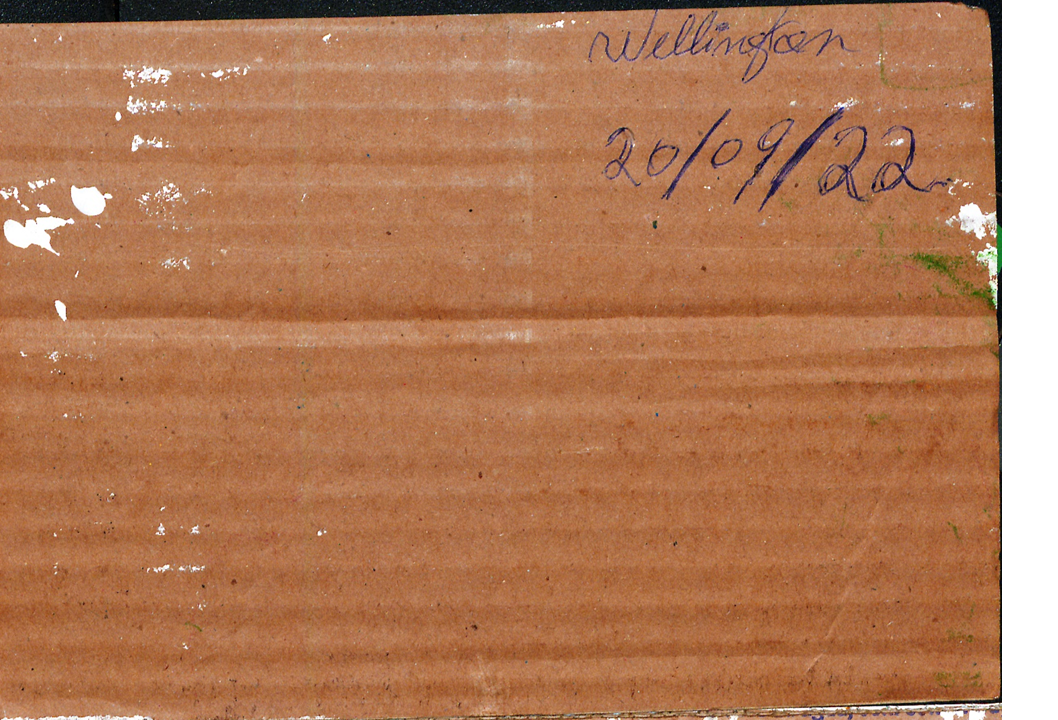 Wellington
20/09/22